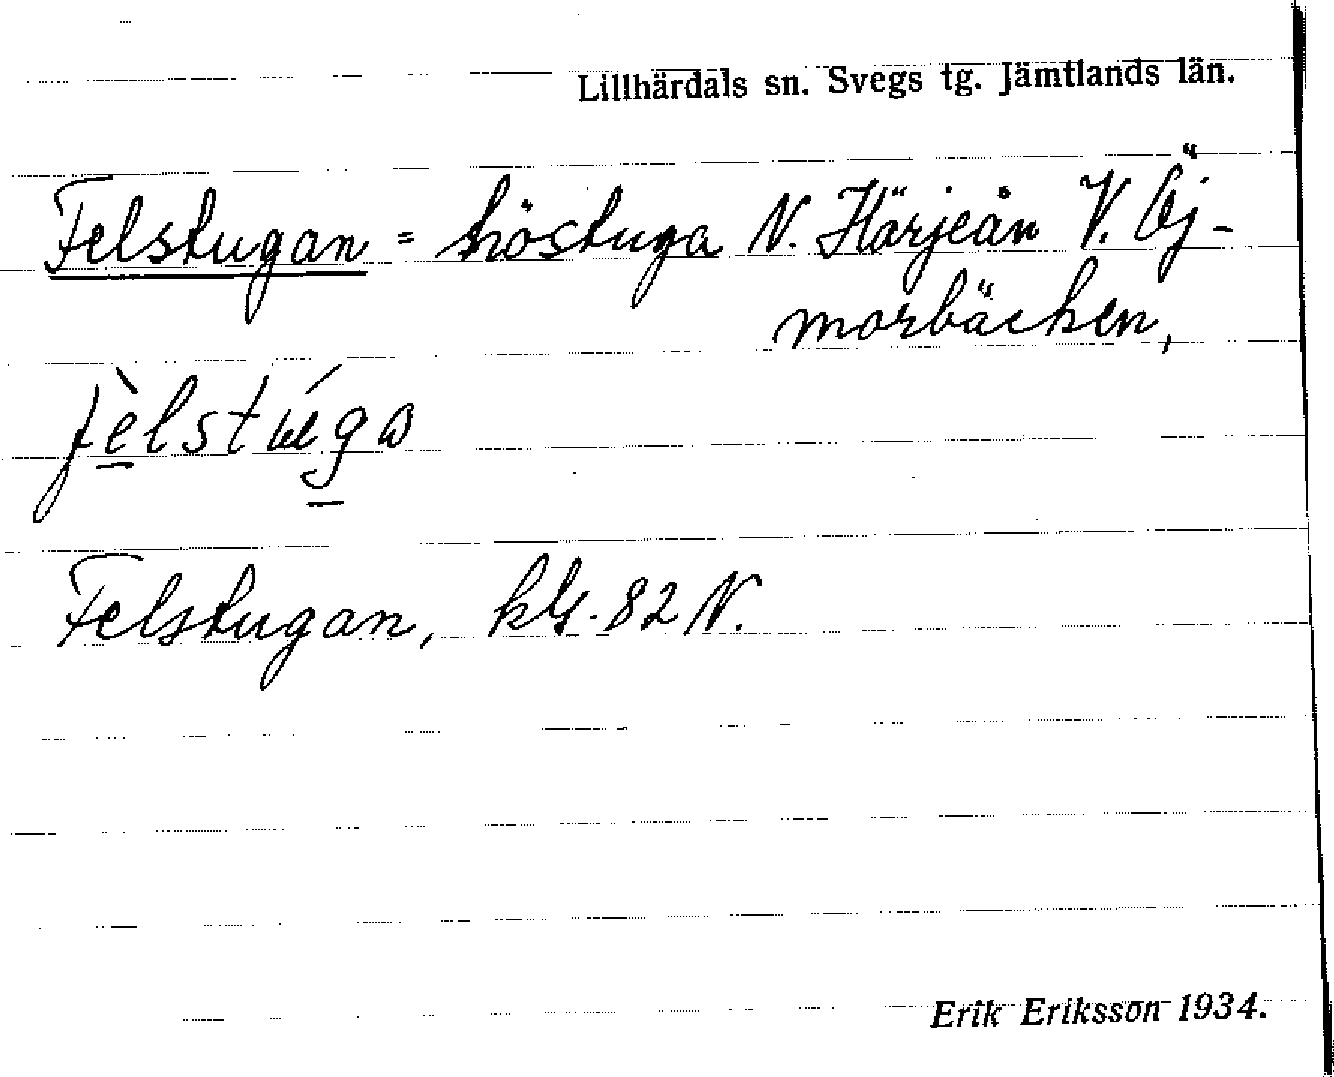 Lillhärdals sn. Svegs tg. Jämtlands län.
Felstugan = höstuga N. Härjeån V. Öj-
morbäcken,
Felstugan, 82 N.
Erik Eriksson 1934.